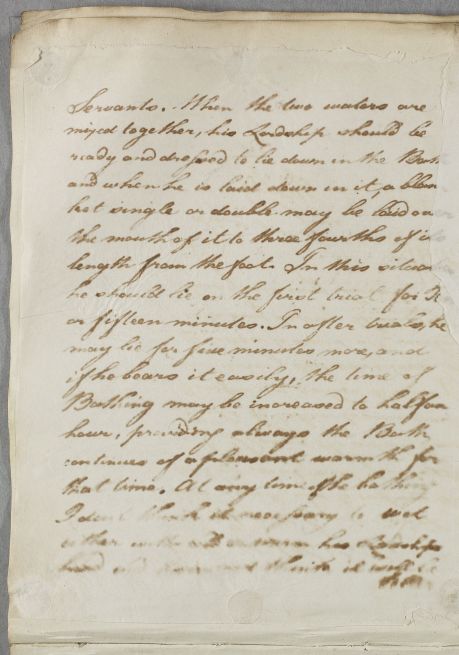 Servants. When the two waters are
mixed together, his Lordship should be
ready and dressed to lie down in the Bath
and when he is laid down in it, a blan
ket single or double may be laid on
the mouth of it to three fourths of its
length from the foot. In this situa
he should lie on the first trial for
or fifteen minutes. In after trials, he
may lie for five minutes more, and
if he bears it easily, the time of
Bathing may be increased to half an
hour, providing always the Bath
continues of a pleasant warmth for
that time. At any time of the bathing
I don't think it necessary to wet
either with or warm his Lordships
head and think it will be